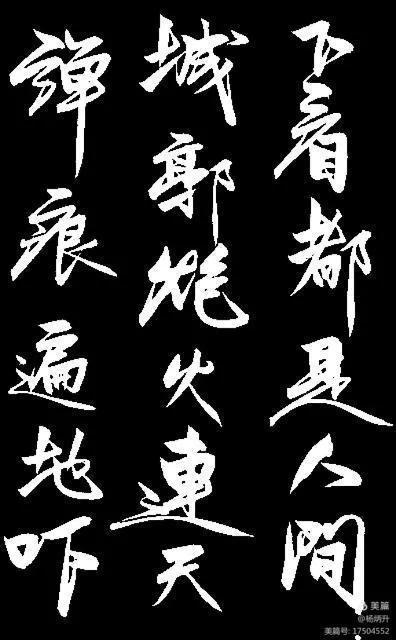 下看都是人間
城郭炮火連天
彈痕遍地吓
美篇
@杨炳升
美篇号: 17504552